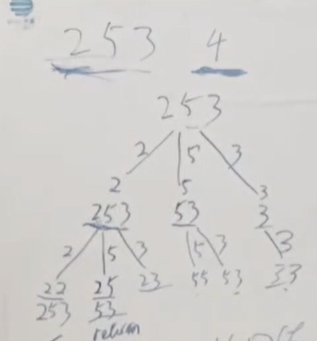 253 4
253
2 5 3
2 5 3
253 53 3
2 5 3 5 3 3
22 25 23 55 53 33
253 53
return